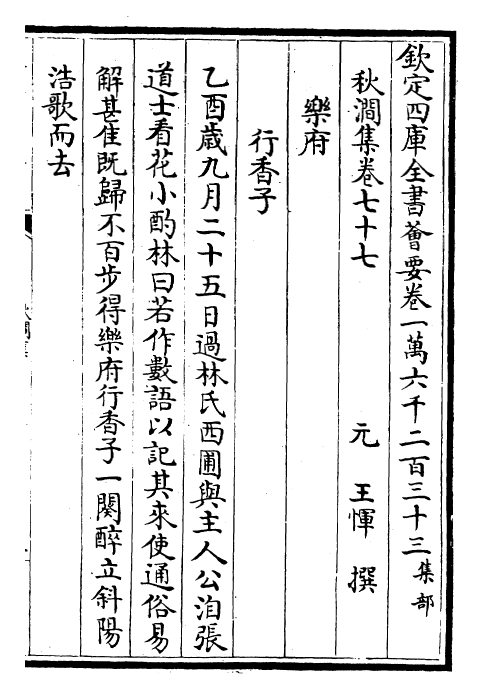 欽定四庫全書薈要卷一萬六千二百三十三集部
秋澗集卷七十七　元　王惲　撰
樂府
行香子
乙酉歲九月二十五日過林氏西圃與主人公洎張
道士看花小酌林曰若作數語以記其來使通俗易
解甚佳既歸不百步得樂府行香子一闋醉立斜陽
浩歌而去